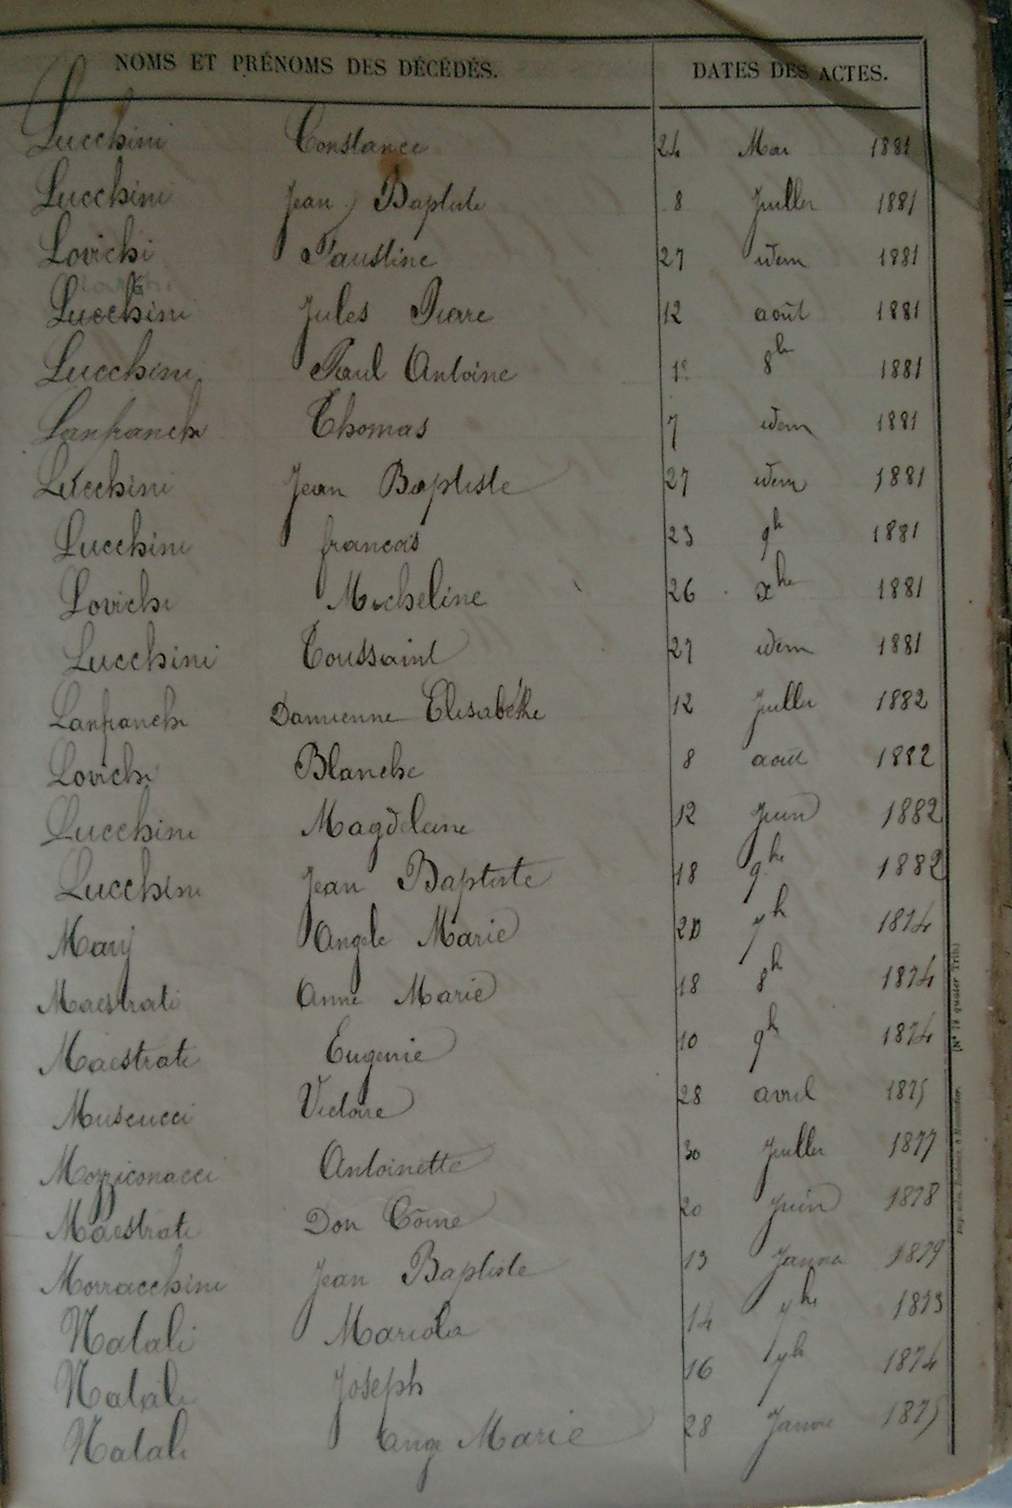 NOMS ET PRÉNOMS DES DÉCÉDÉS. DATES DES ACTES.
Lucchini Constance 24 Mai 1881
Lucchini Jean Baptiste 8 Juillet 1881
Lovichi Faustine 27 idem 1881
Lucchini Jules Pierre 12 août 1881
Lucchini Paul Antoine 1er 8bre 1881
Lanfranchi Thomas 7 idem 1881
Lucchini Jean Baptiste 27 idem 1881
Lucchini francois 23 9bre 1881
Lovichi Micheline 26 xbre 1881
Lucchini Toussaint 27 idem 1881
Lanfranchi Damienne Elisabethe 12 Juillet 1882
Lovichi Blanche 8 août 1882
Lucchini Magdeleine 12 Juin 1882
Lucchini Jean Baptiste 18 9bre 1882
Mary Angele Marie 20 7bre 1874
Maestrati Anne Marie 18 8bre 1874
Maestrati Eugenie 10 9bre 1874
Muscucci Victoire 28 avril 1875
Mozziconacci Antoinette 30 Juillet 1877
Maestrati Don Côme 20 Juin 1878
Morracchini Jean Baptiste 13 Janvier 1879
Natali Mariola 14 7bre 1873
Natali Joseph 16 7bre 1874
Natali Ange Marie 28 Janvier 1875
(N° 78 quater Trib.)